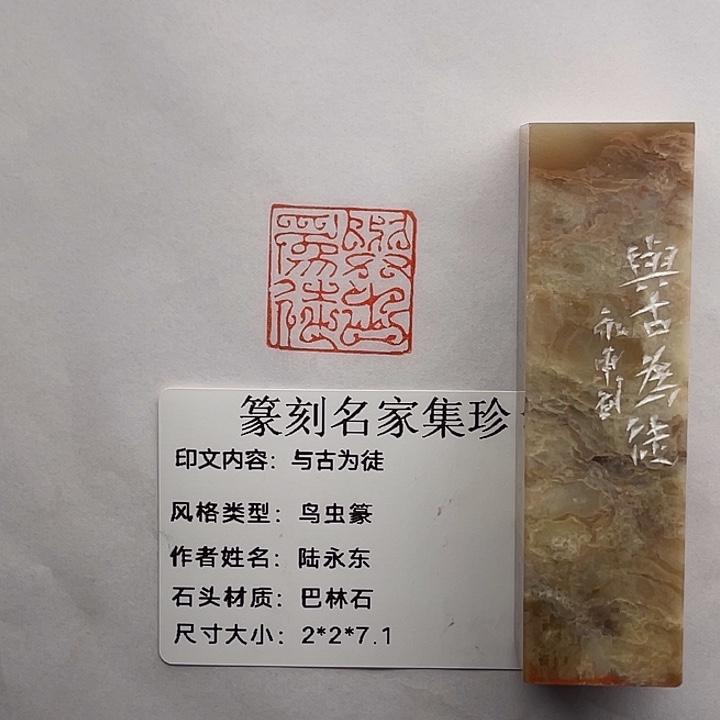 與古為徒
永東刻
與古為徒
篆刻名家集珍
印文内容：与古为徒
风格类型：鸟虫篆
作者姓名：陆永东
石头材质：巴林石
尺寸大小：2*2*7.1